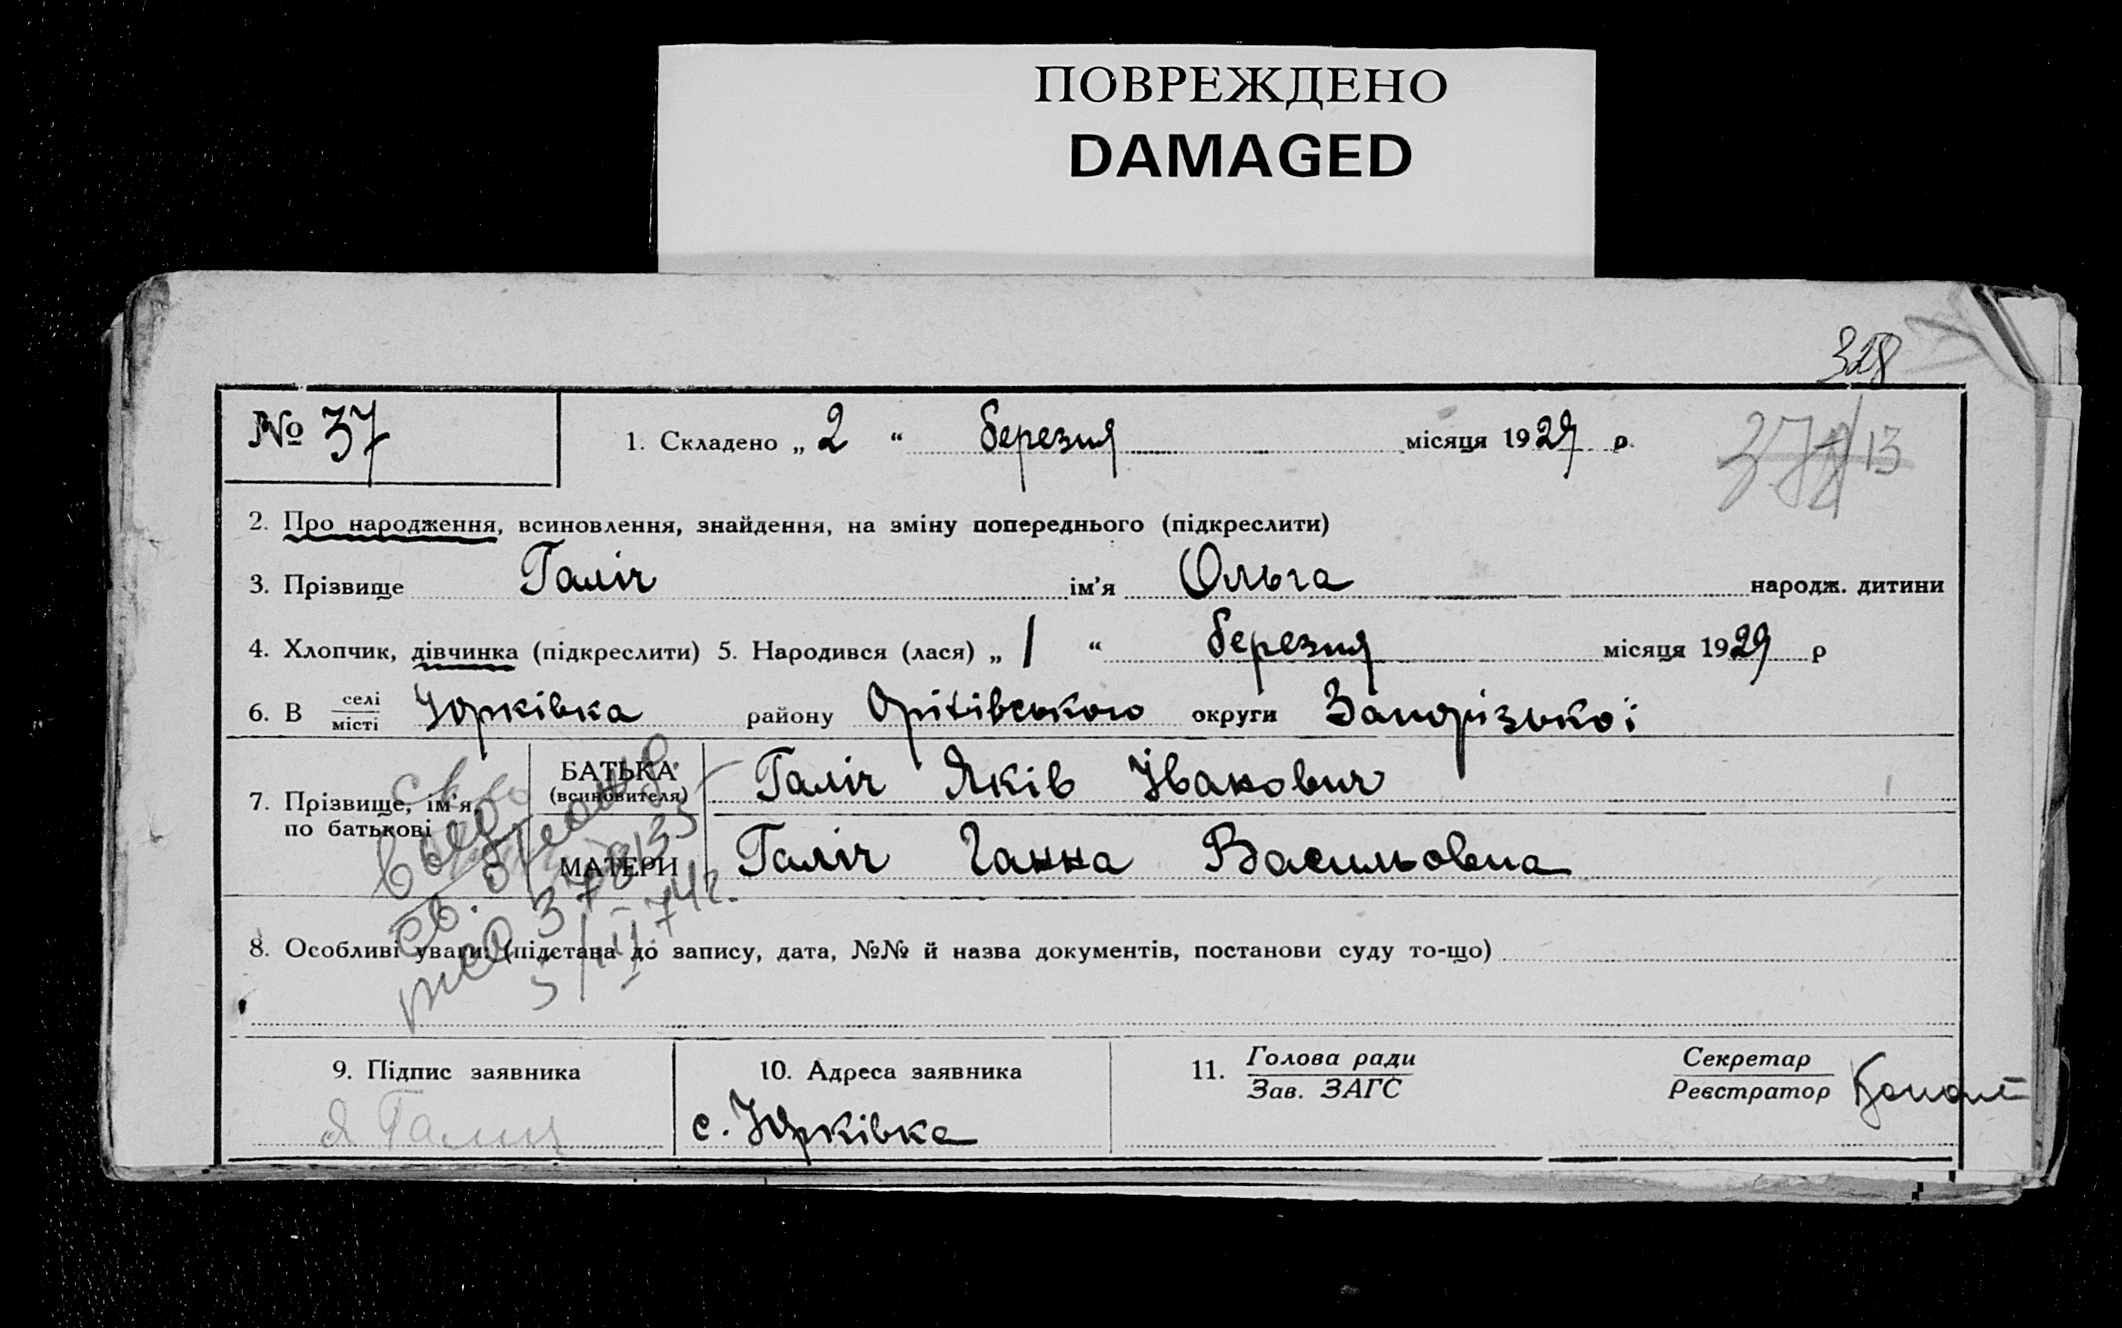 ПОВРЕЖДЕНО
DAMAGED
328
№ 37
1. Складено „ 2 “ березня місяця 1929 р.
13
2. Про народження, всиновлення, знайдення, на зміну попереднього (підкреслити)
3. Прізвище Галіч ім'я Ольга народж. дитини
4. Хлопчик, дівчинка (підкреслити) 5. Народився (лася) „ 1 “ березня місяця 1929 р
6. В селі / місті Юрківка району Оріхівського округи Запорізької
7. Прізвище, ім'я, по батькові
БАТЬКА (всиновителя) Галіч Яків Іванович
МАТЕРИ Галіч Ганна Васильовна
8. Особливі уваги: (підстава до запису, дата, №№ й назва документів, постанови суду то-що)
5/II 74г.
9. Підпис заявника
Я Галич
10. Адреса заявника
с. Юрківка
11. Голова ради / Зав. ЗАГС
Секретар / Реєстратор